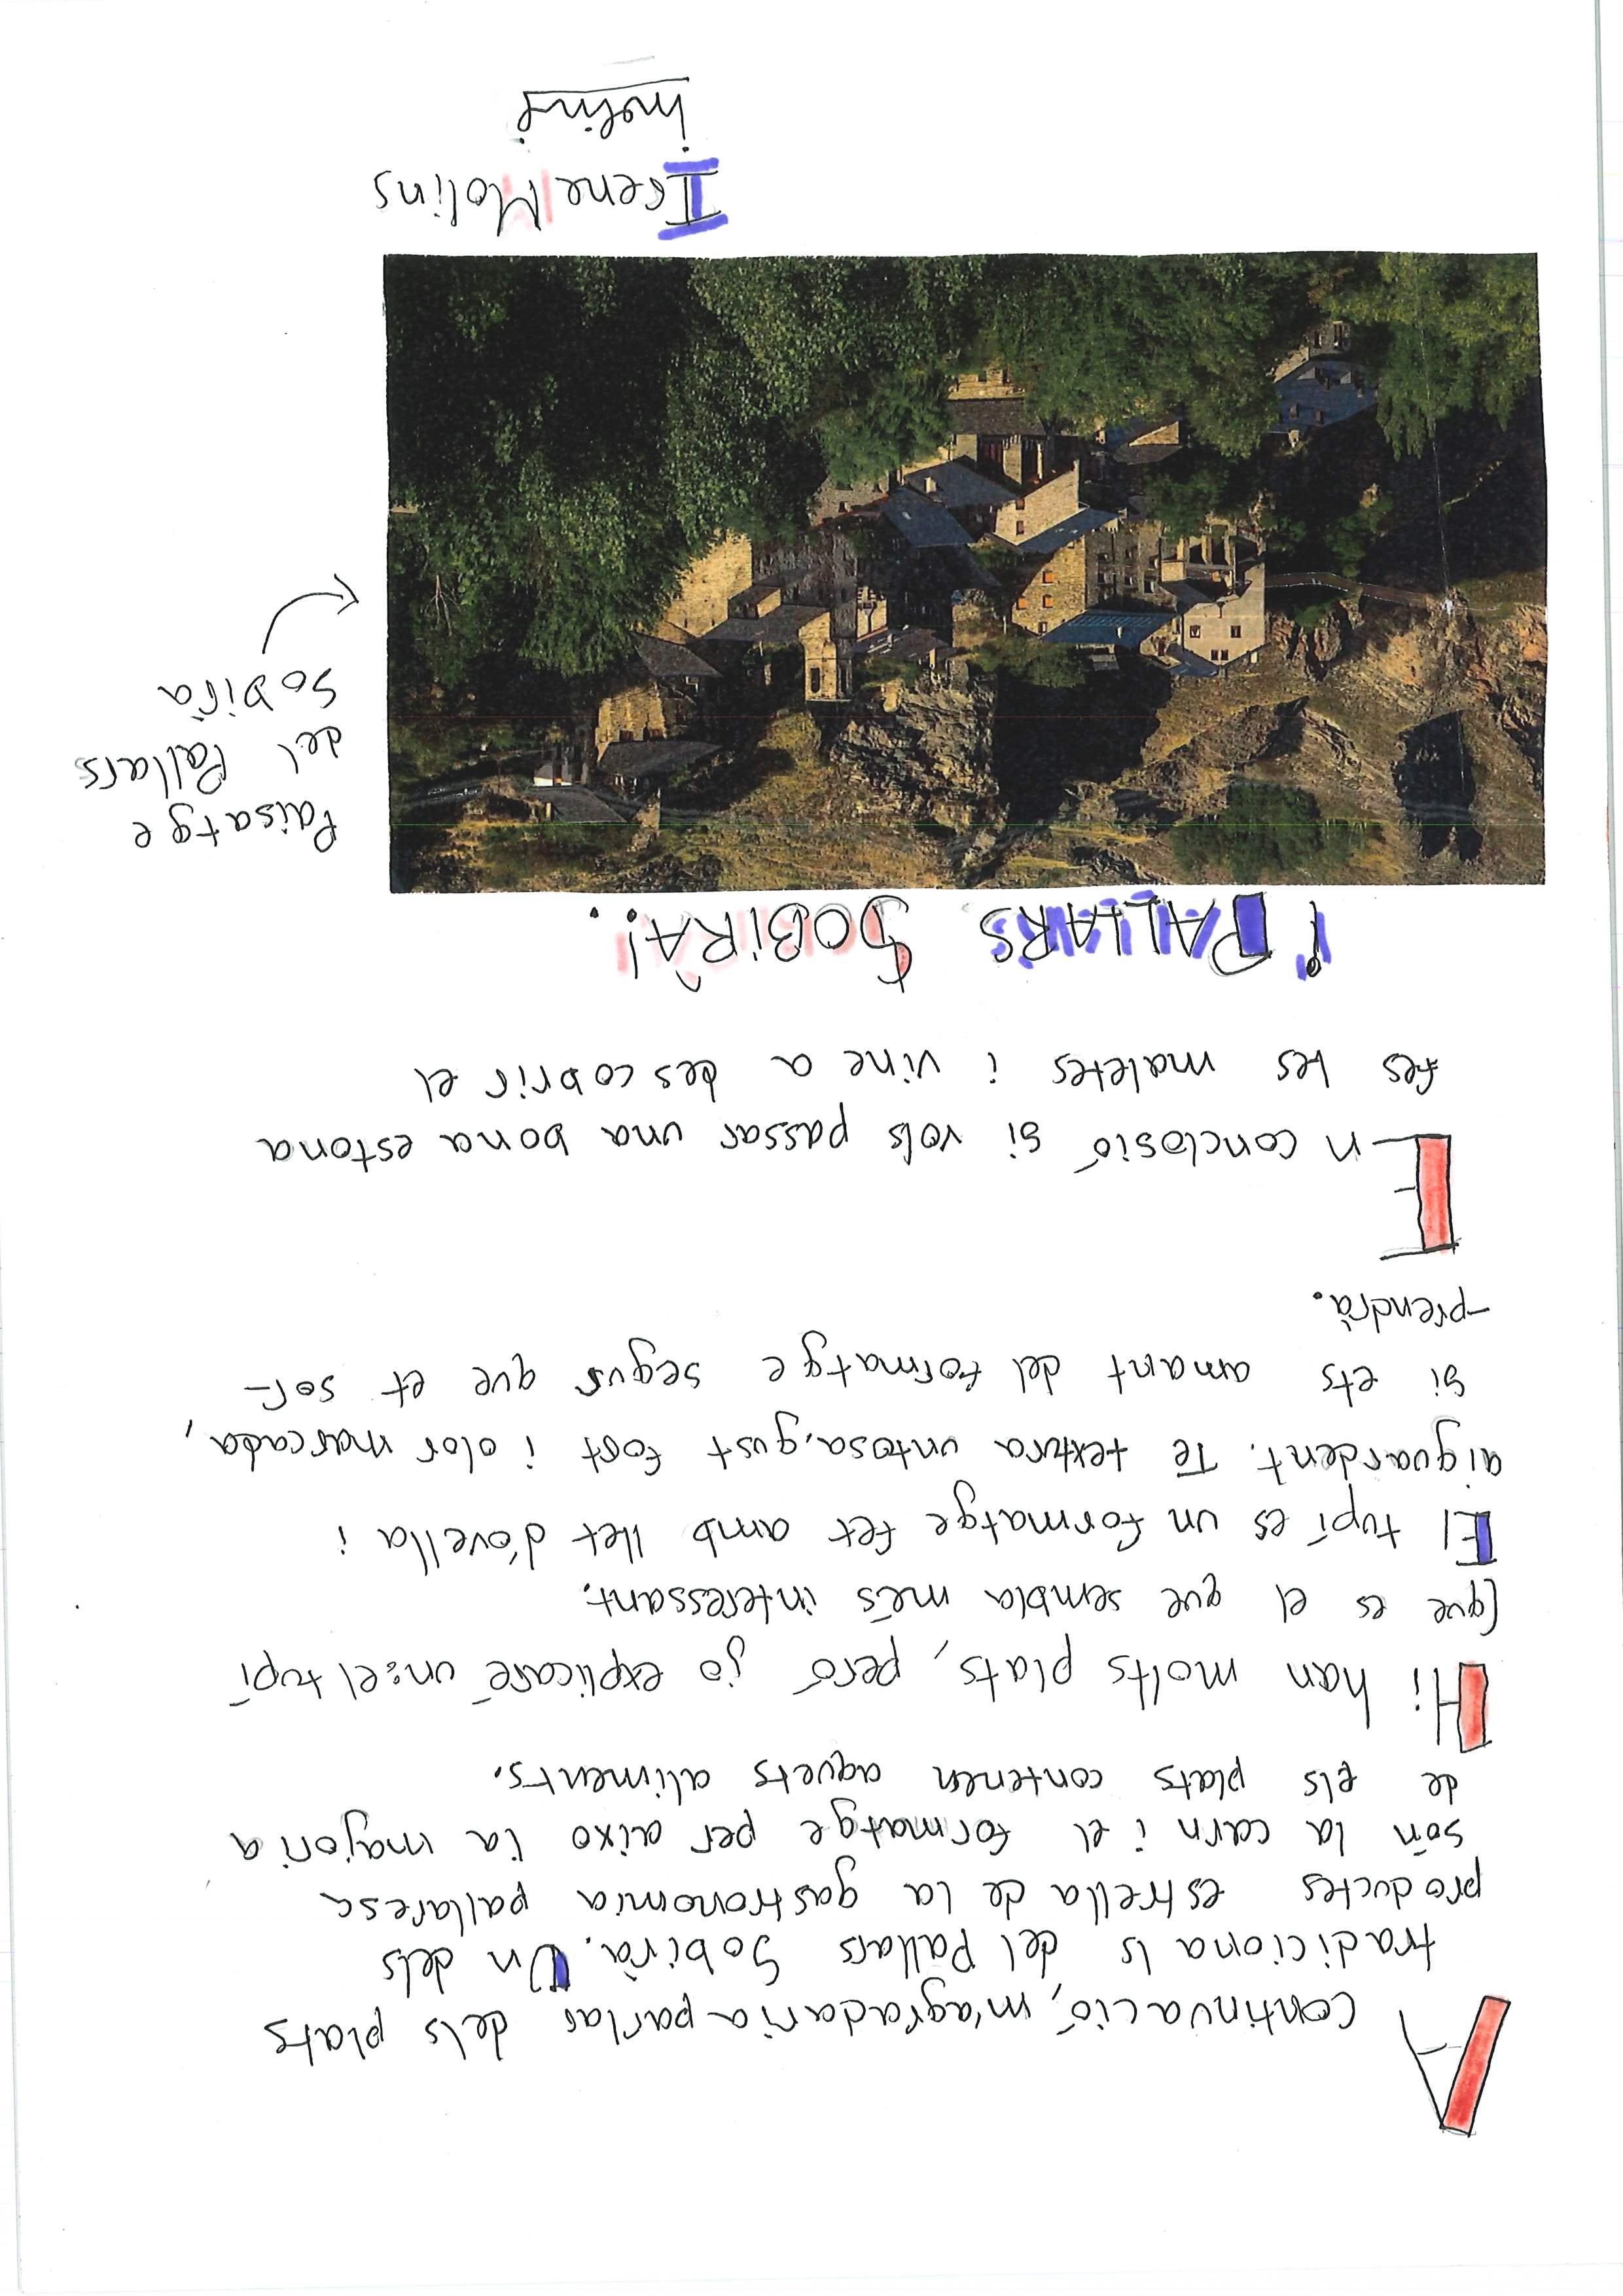 A continuació, m'agradaria parlar dels plats
tradicionals del Pallars Sobirà. Un dels
productes estrella de la gastronomia pallaresa
són la carn i el formatge per aixo la majoria
de els plats contenen aquets aliments.
Hi han molts plats, peró jo explicaré un: el tupí
(que es el que sembla més interessant.
El tupí es un formatge fet amb llet d'ovella i
aiguardent. Te textura untosa, gust fort i olor marcada,
si ets amant del formatge segur que et sor-
-prendrà.
En conclosió si vols passar una bona estona
fes les maletes i vine a descobrir el
¡PALLARS SOBIRÀ!.
Paisatge
del Pallars
Sobirà
Irene Molins